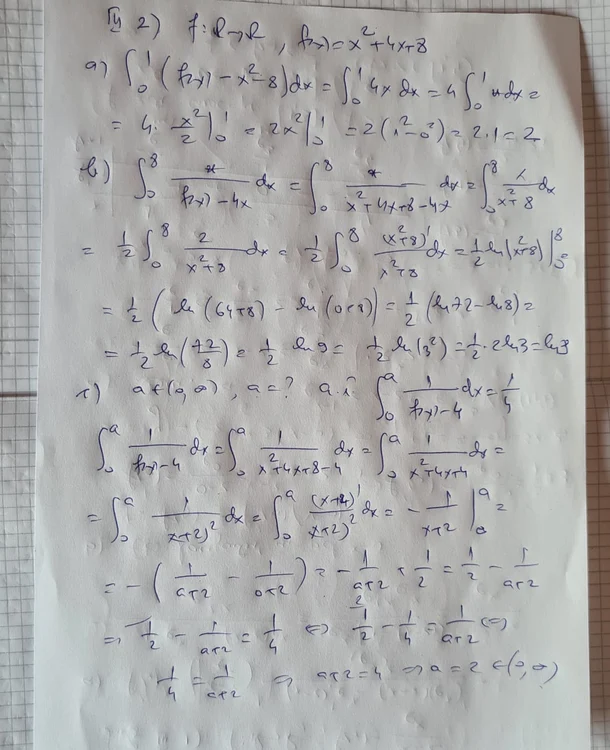 III 2) f: R→R, f(x) = x² + 4x + 8
a) ∫₀¹ (f(x) - x² - 8) dx = ∫₀¹ 4x dx = 4 ∫₀¹ x dx =
= 4 · x²/2 |₀¹ = 2x² |₀¹ = 2(1² - 0²) = 2·1 = 2
b) ∫₀⁸ x/(f(x) - 4x) dx = ∫₀⁸ x/(x² + 4x + 8 - 4x) dx = ∫₀⁸ x/(x² + 8) dx
= 1/2 ∫₀⁸ 2/(x² + 8) dx = 1/2 ∫₀⁸ (x² + 8)'/(x² + 8) dx = 1/2 ln(x² + 8) |₀⁸
= 1/2 (ln(64 + 8) - ln(0 + 8)) = 1/2 (ln72 - ln8) =
= 1/2 ln(72/8) = 1/2 ln 9 = 1/2 ln(3²) = 1/2 · 2ln3 = ln3
c) a ∈ (0, ∞), a = ? a.î ∫₀ᵃ 1/(f(x) - 4) dx = 1/4
∫₀ᵃ 1/(f(x) - 4) dx = ∫₀ᵃ 1/(x² + 4x + 8 - 4) dx = ∫₀ᵃ 1/(x² + 4x + 4) dx =
= ∫₀ᵃ 1/(x+2)² dx = ∫₀ᵃ (x+2)'/(x+2)² dx = - 1/(x+2) |₀ᵃ =
= - (1/(a+2) - 1/(0+2)) = - 1/(a+2) + 1/2 = 1/2 - 1/(a+2)
⇒ 1/2 - 1/(a+2) = 1/4 ⇔ 1/2 - 1/4 = 1/(a+2) ⇔
1/4 = 1/(a+2) ⇒ a+2 = 4 ⇒ a = 2 ∈ (0, ∞)